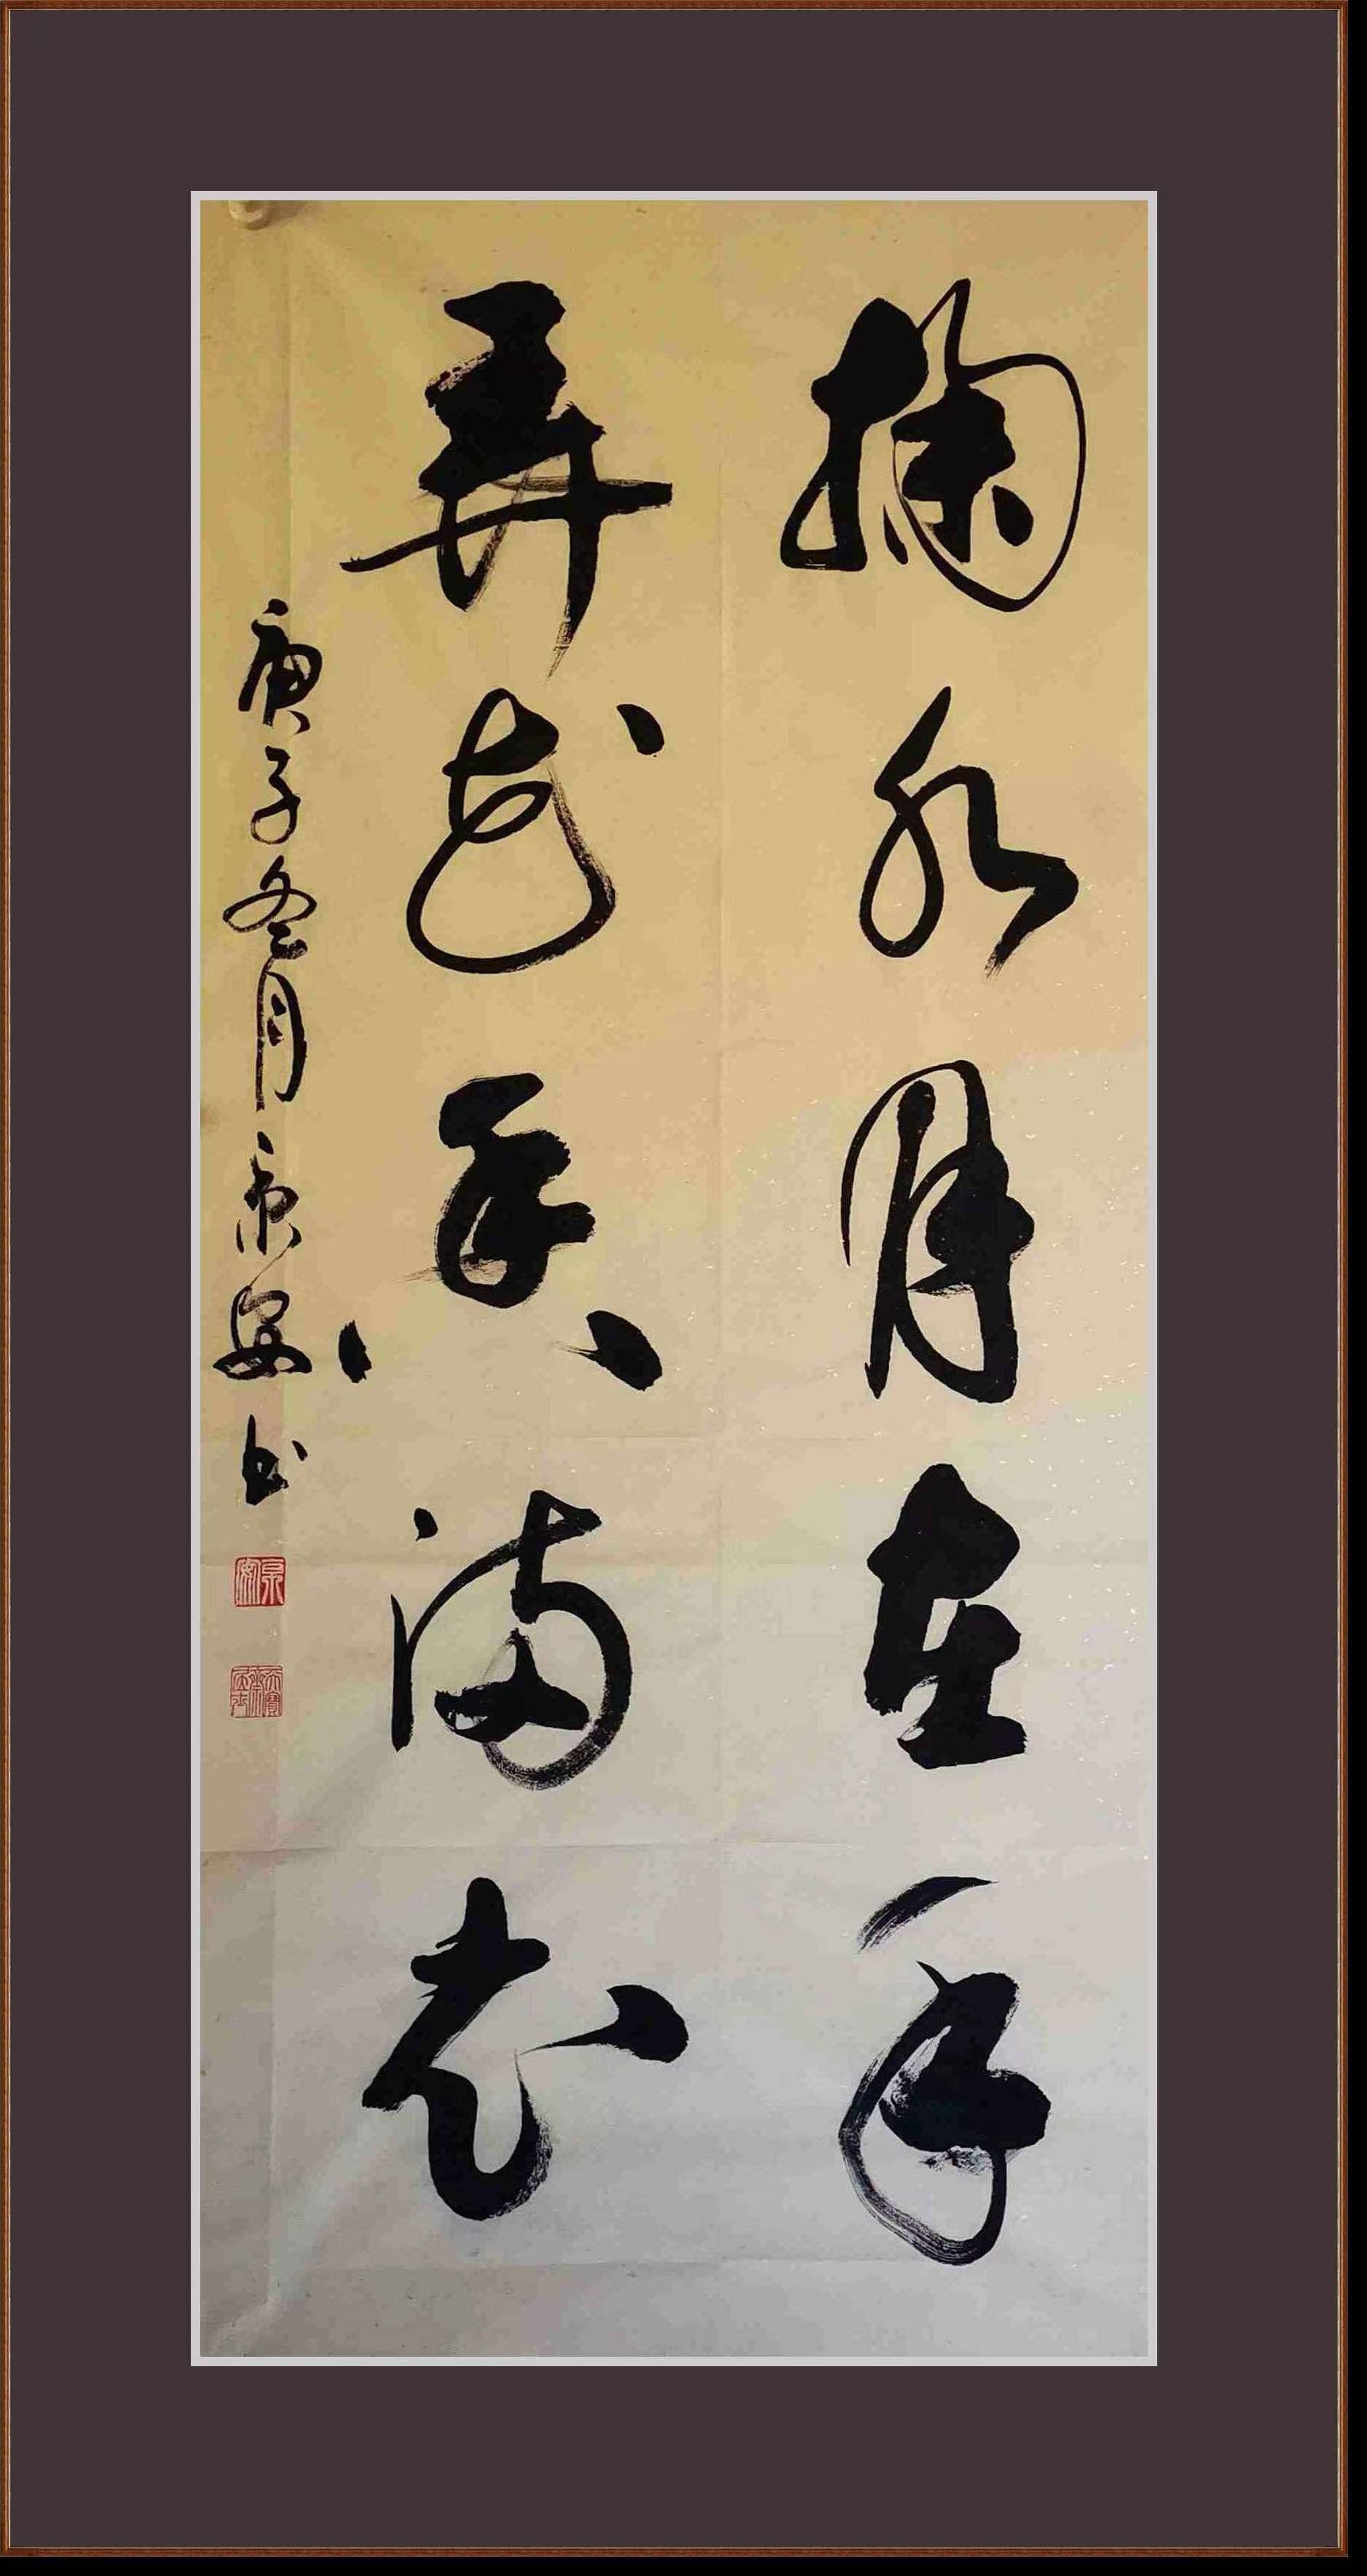 掬水月在手
弄花香满衣
庚子冬月京安书